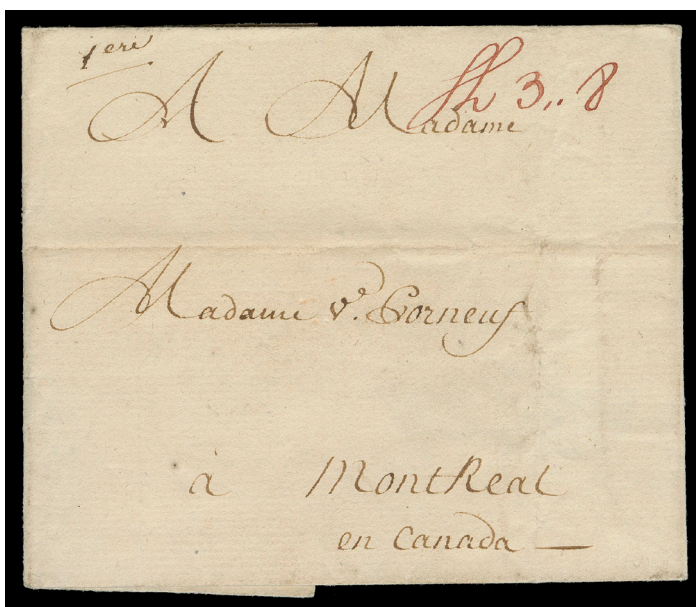 1ere
Sh 3,, 8
A Madame
Madame ve. Porneuf
à MontReal
en Canada —